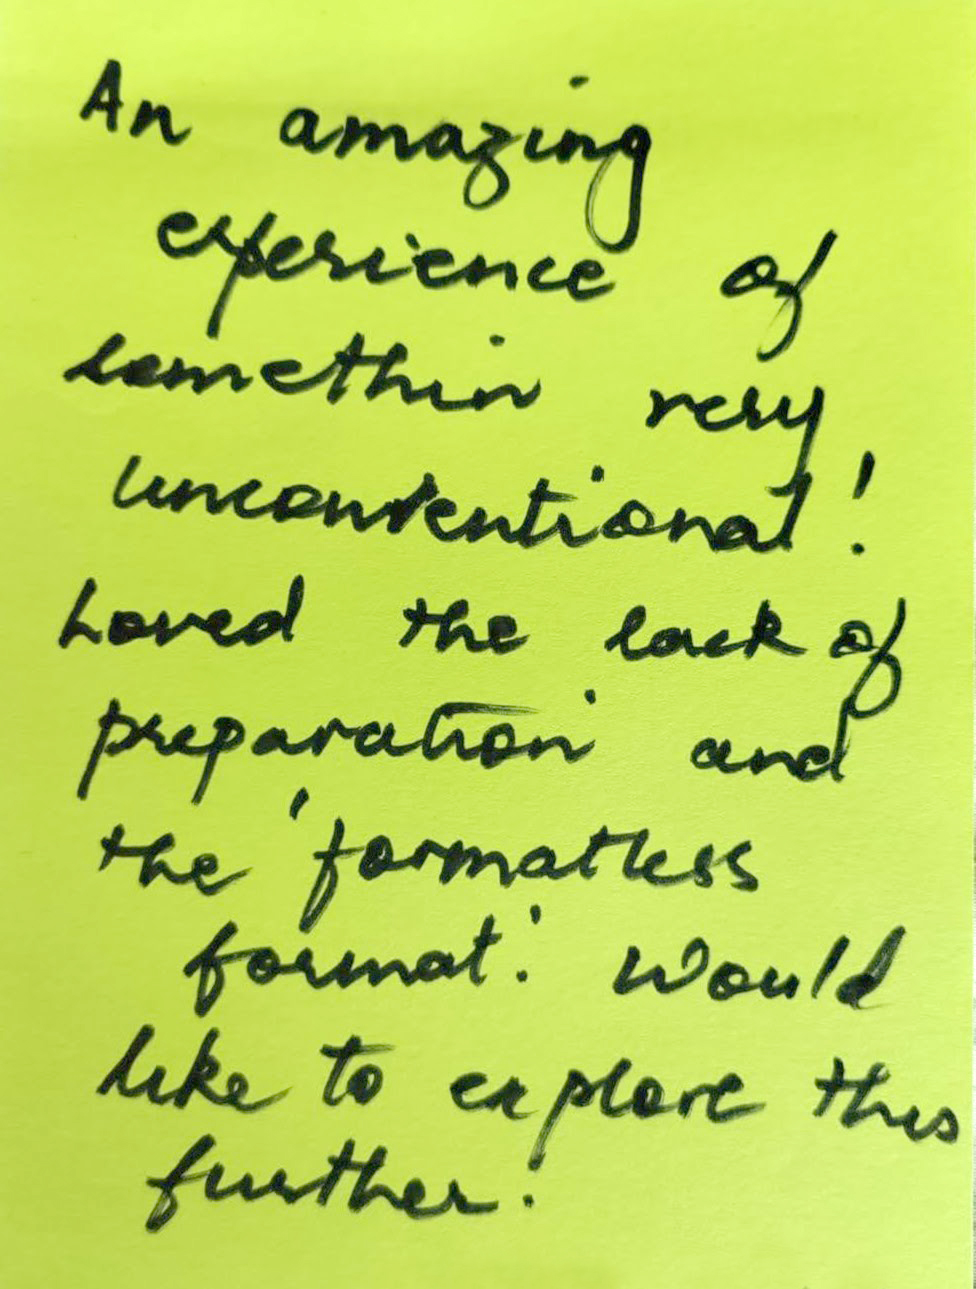 An amazing
experience of
somethin very
unconventional!
Loved the lack of
preparation and
the 'formatless
format'. Would
like to explore this
further!